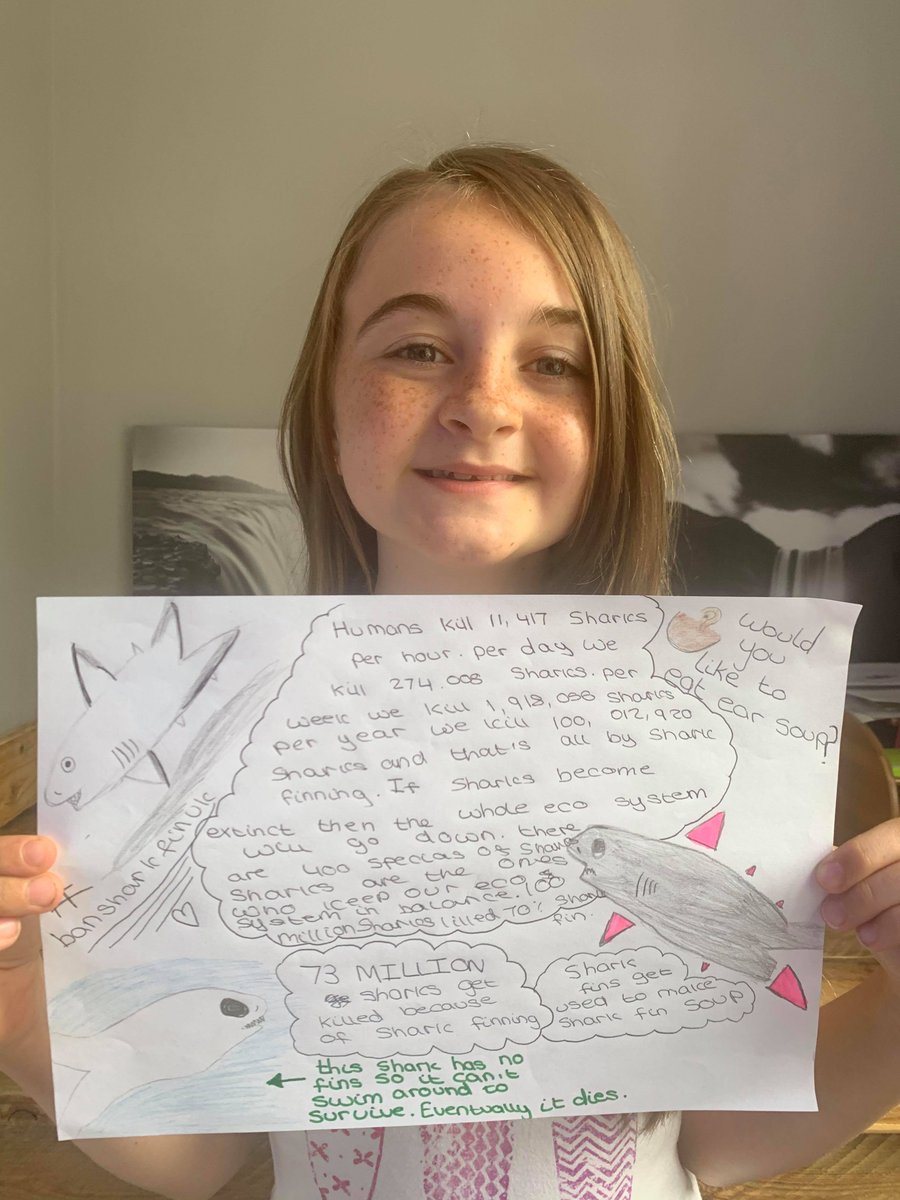 Humans kill 11,417 Sharks
per hour. per day we
kill 274.008 Sharks. per
week we kill 1,918,056 Sharks
per year we kill 100, 012,920
Sharks and that's all by Shark
finning. If Sharks become
extinct then the whole eco system
will go down. there
are 400 specias of Shark
Sharks are the ones
who keep our eco
system in balance. 100
million Sharks killed 70% Shark
fin.
would
you
like to
eat ear soup?
#
ban.shark.fin.uk
73 MILLION
sharks get
killed because
of Shark finning
Shark
fins get
used to make
Shark fin soup
this Shark has no
fins so it can't
swim around to
survive. Eventually it dies.